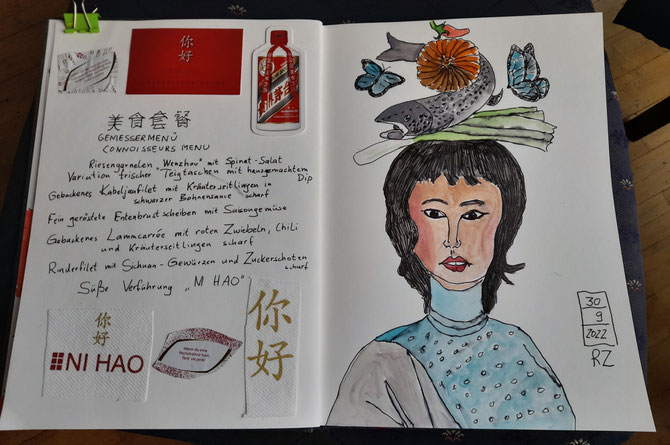 你好
美食套餐
GENIESSERMENÜ
CONNOISSEURS MENU
Riesengarnelen „Wenzhou" mit Spinat-Salat
Variation frischer Teigtaschen mit hausgemachtem
Dip
Gebackenes Kabeljaufilet mit Kräuterseitlingen in
schwarzer Bohnensauce scharf
Fein geröstete Entenbrustscheiben mit Saisongemüse
Gebackenes Lammcarrée mit roten Zwiebeln, Chili
und Kräuterseitlingen scharf
Rinderfilet mit Sichuan-Gewürzen und Zuckerschoten
scharf
Süße Verführung „NI HAO"
你好
NI HAO
你好
30
9
2022
RZ